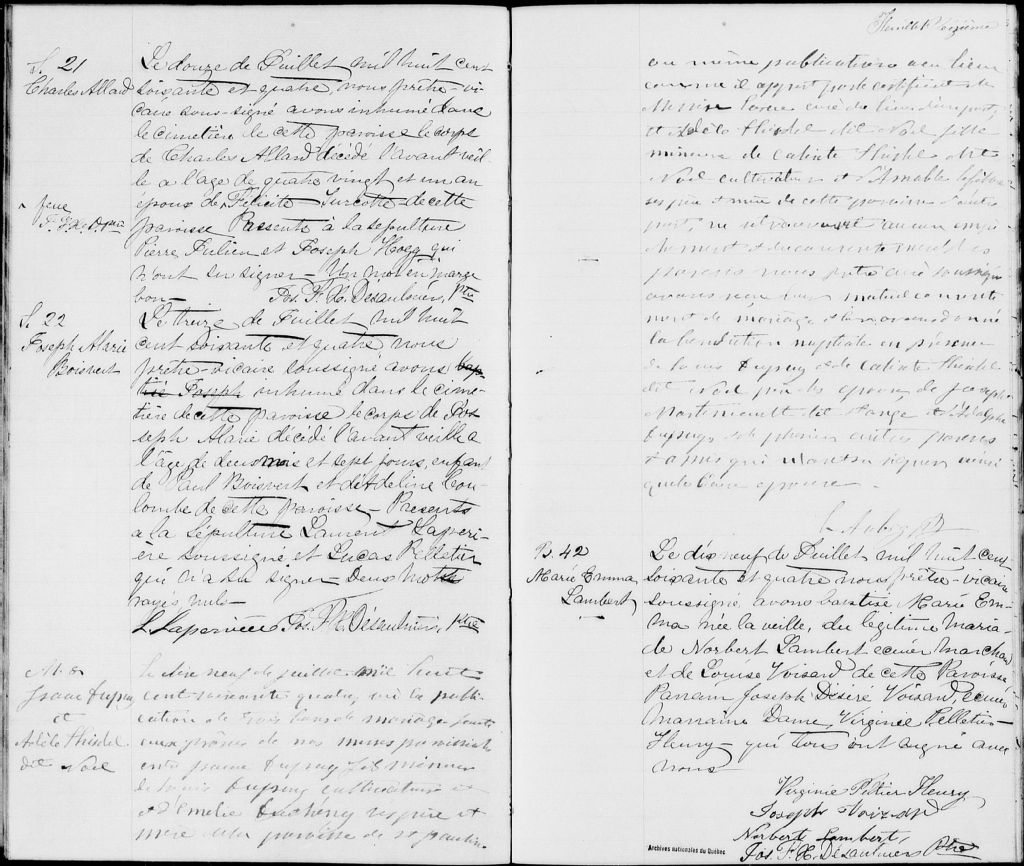 S. 21
Charles Allard
Le douze de Juillet mil huit cent
soixante et quatre, nous prêtre-vi-
caire sous-signé avons inhumé dans
le cimetière de cette paroisse le corps
de Charles Allard décédé l'avant veil-
le a l'age de quatre vingt et un an
epoux de Félicité Turcotte de cette
paroisse Presents à la sépulture
Pierre Julien et Joseph Hogg qui
n'ont su signer — Un mot en marge
bon — Jos. F. X. Désaulniers, Ptre
^ feue
S. 22
Joseph Alarie
Boisvert
Le treize de Juillet mil huit
cent soixante et quatre nous
prêtre-vicaire soussigné avons bap-
tisé Joseph inhumé dans le cime-
tière de cette paroisse le corps de Jos-
seph Alarie décédé l'avant veille a
l'âge de deux mois et sept jours, enfant
de Paul Boisvert et d'Adeline Cou-
lombe de cette paroisse — Presents
a la Sépulture Laurent Laperi-
ere soussigné et Lucas Pelletier
qui n'a su signer — Deux mots
rayés nuls —
L Laperiere Jos. F. X. Désaulniers, Ptre
M. 8
Isaac Dupuy
et
Adèle Thisdel
dit Noël
Le dix neuf de juillet mil huit
cent soixante quatre, vu la publi-
cation de trois bans de mariage faite
aux prônes de nos messes paroissiales
entre Isaac Dupuy fils mineur
de Louis Dupuy cultivateur et
et d'Emelie ses père et
mère de la paroisse de St Paulin.
Feuillet
ou même publication a eu lieu
comme il appert par le certificat de
Messire curé du lieu d'une part,
et Adèle Thisdel dit Noël fille
mineure de Calixte Thisdel dit
Noël cultivateur et d'Amable
ses père et mère de cette paroisse d'autre
part, ne découvrant aucun empê-
chement et du consentement des
parens nous prêtre curé soussigné
avons reçu leur mutuel consente-
ment de mariage et leur avons donné
la bénédiction nuptiale en présence
de Louis Dupuy et de Calixte Thisdel
dit Noël père des époux, de Joseph
dit et d'Adolphe
Dupuy, et de plusieurs autres parens
et amis qui n'ont su signer ainsi
que les époux.
B. 42
Marie Emma
Lambert
Le dix neuf de Juillet mil huit cent
soixante et quatre nous prêtre-vicaire
soussigné, avons baptisé Marie Em-
ma née la veille, du légitime Maria-
de Norbert Lambert ecuier Marchand
et de Louise Voisard de cette Paroisse
Parrain Joseph Désiré Voisard, ecuier
Marraine Dame Virginie Pelletier-
Fleury — qui tous ont signé avec
nous
Virginie Peltier Fleury
Joseph Voizard
Norbert Lambert,
Jos. F. X. Désaulniers Ptre
Archives nationales du Québec